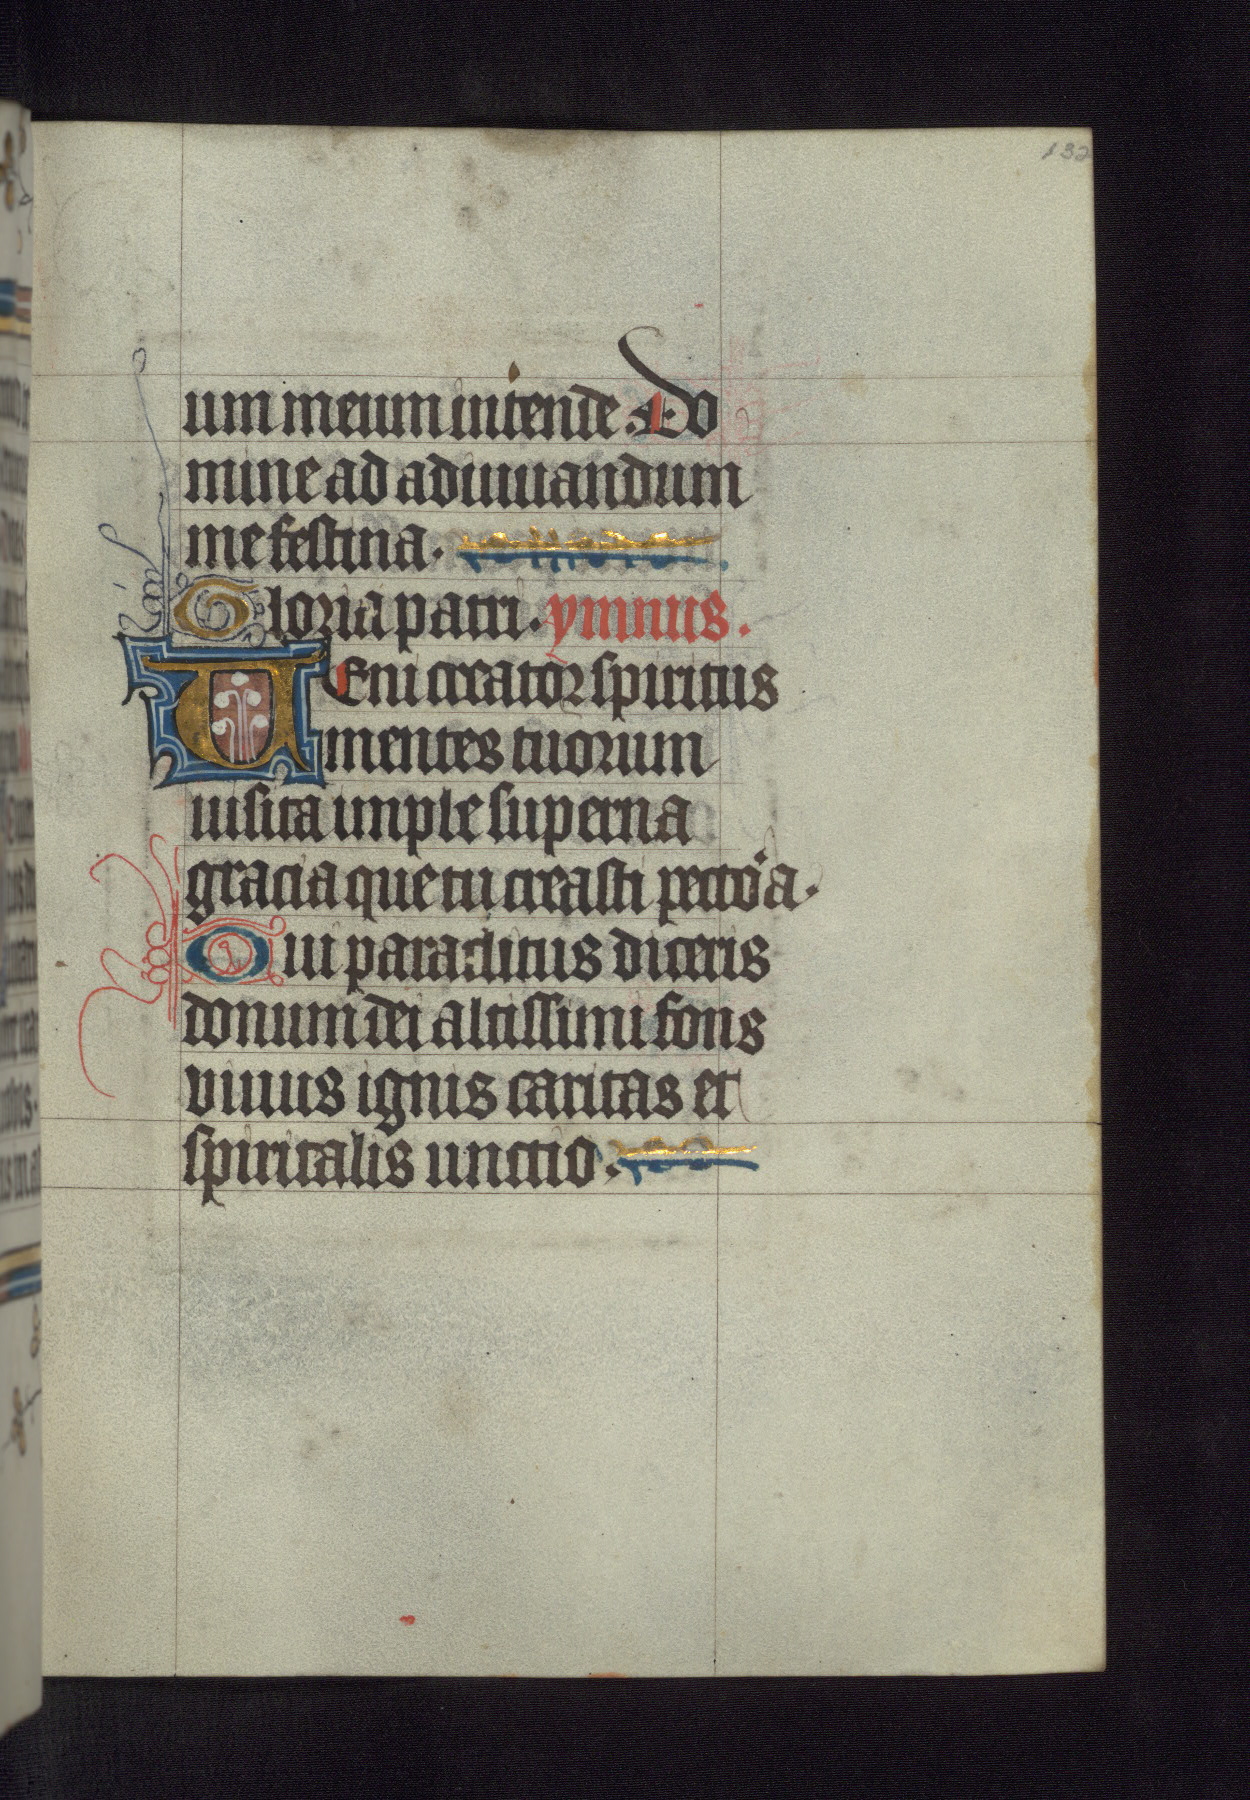 132
um meum intende. Do
mine ad adiuuandum
me festina.
Gloria patri. ymnus.
UEni creator spiritus
mentes tuorum
uisita imple superna
gracia que tu creasti pectoa.
Qui paraclitus diceris
donum dei altissimi fons
viuus ignis caritas et
spiritalis unctio.